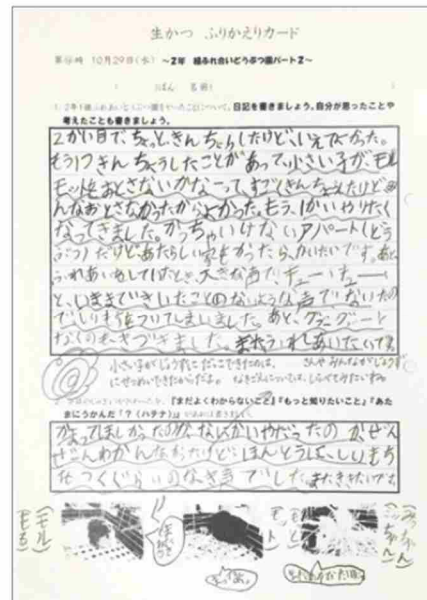 生かつ ふりかえりカード
10月29日(水) ~2年 組ふれ合いどうぶつ園パート2~
日記を書きましょう。自分が思ったことや
考えたことも書きましょう。
2かい目で、ちょっときんちょうしたけど、いえてよかった。
もう1つきんちょうしたことがあって、小さい子がモル
モットをおとさないかなーって、すごくきんちょうしたけど
んなおとさなかったからよかった。もう、1かいやりたく
なってきました。かっちゃいけないアパート(どう
ぶつ)だけどあたらしい家をかったら、かいたいです。あと、
ふれあいをしていたとき、大きな声で、チューチュー
と、いままできいたことのないような声でないたの
でしりもちをついてしまいました。あと、
なくのも きづきました。またふれあいたいです。
小さい子がじょうずにだっこできたのは、 さんやみんながじょうず
にせつめいできたからだよ。 なきごえについては、しらべてみたいですね
『まだよくわからないこと』『もっと知りたいこと』『あた
まにうかんだ「?(ハテナ)」
かまってほしかったのか、なんかいやだったのか、ぜん
ぜんわかんなかったけど、ほんとうに、しりもち
をつくぐらいのなき声でした。またききたいです。